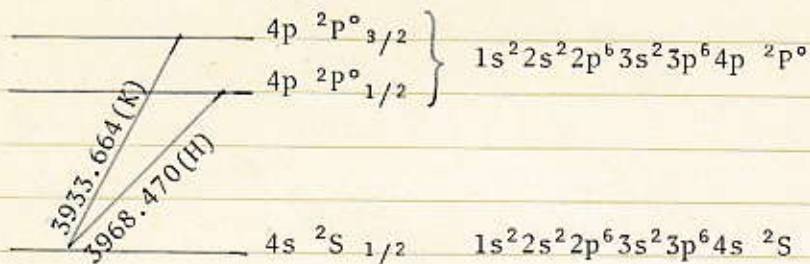 4p ²P°₃/₂
4p ²P°₁/₂
1s²2s²2p⁶3s²3p⁶4p ²P°
3933.664(K)
3968.470(H)
4s ²S ₁/₂
1s²2s²2p⁶3s²3p⁶4s ²S